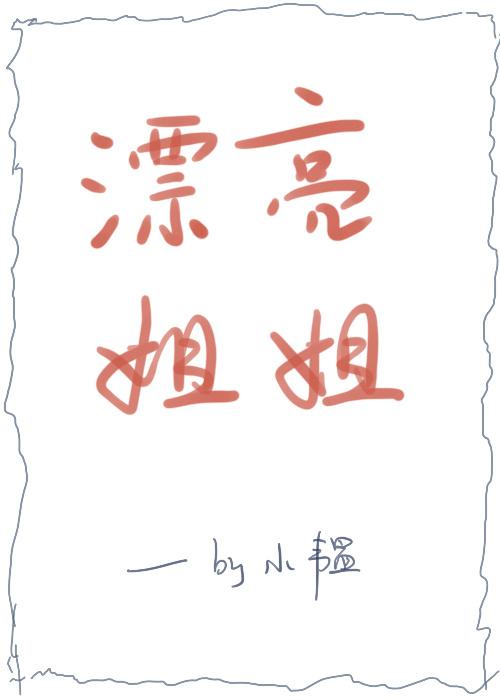 漂亮
姐姐
— by 小韫